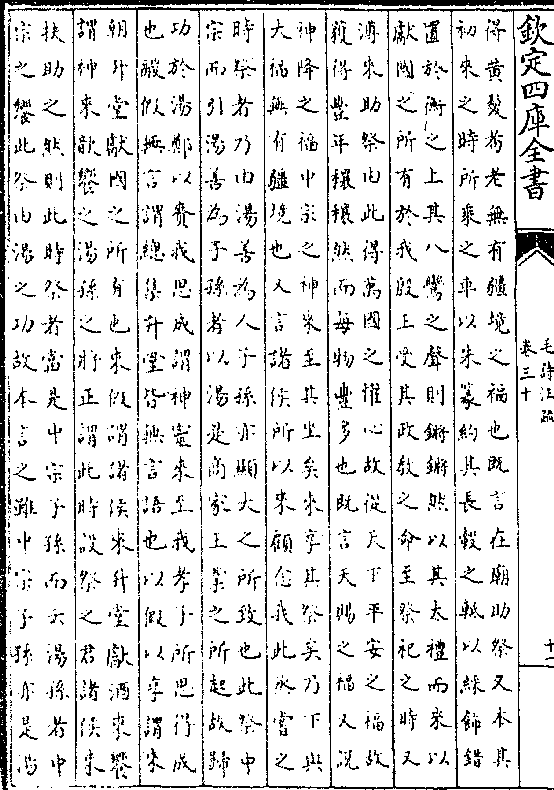 欽定四庫全書
毛詩注疏
卷三十
得黄髮耇老無有疆境之福也既言在廟助祭又本其
初來之時所乗之車以朱篆約其長轂之軝以綵飾錯
置於衡之上其八鸞之聲則鏘鏘然以其大禮而來以
獻國之所有於我殷上受其政教之命至祭祀之時又
溥來助祭由此得萬國之懽心故從天下平安之福故
獲得豐年穰穰然而每物豐多也既言天賜之福又説
神降之福中宗之神來至其坐矣來享其祭矣乃下與
大福無有疆境也又言諸侯所以來顧念我此烝嘗之
時祭者乃由湯善為人子孫亦顯大之所致也此祭中
宗而引湯善為子孫者以湯是商家王業之所起故歸
功於湯鄭以賚我思成謂神靈來至我孝子所思得成
也鬷假無言謂總集升堂皆無言語也以假以享謂來
朝升堂獻國之所有也來假謂諸侯來升堂獻酒來饗
謂神來歆饗之湯孫之將正謂此時設祭之君諸侯來
扶助之然則此時祭者當是中宗子孫而云湯孫者中
宗之饗此祭由湯之功故本言之雖中宗子孫亦是湯